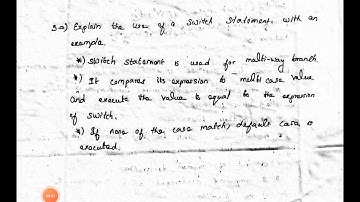 5.a) Explain the use of a switch statement with an
example.
*) switch statement is used for multi-way branch.
*) It compares its expression to multi case value
and execute the value is equal to the expression
of switch.
*) If none of the case match, default case is
executed.